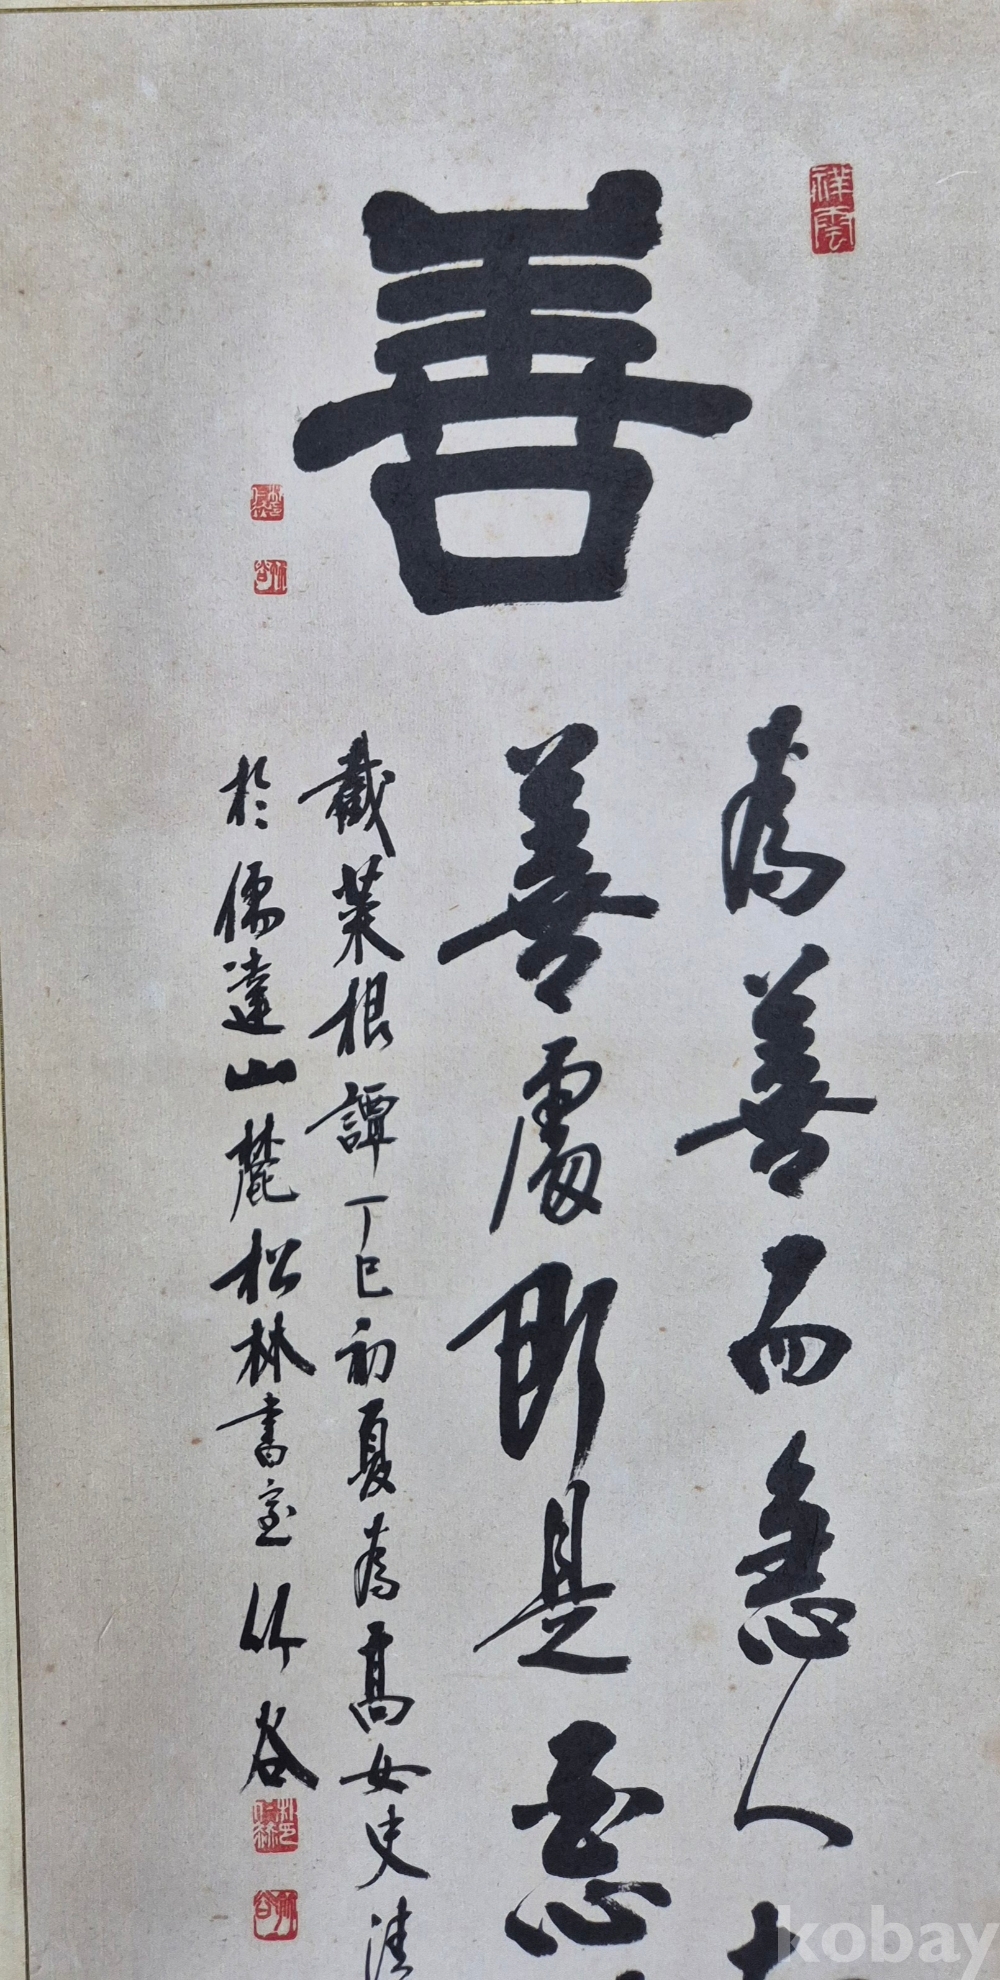 祥雲
善
為善而急人
善處即是惡
截菜根譚丁巳初夏為高女史清
於儒達山麓松林書室竹谷
竹谷
kobay